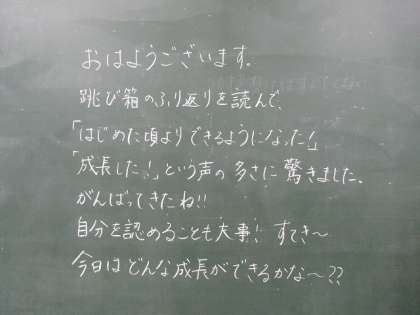 おはようございます.
跳び箱のふり返りを読んで、
「はじめた頃よりできるようになった!」
「成長した!」という声の多さに驚きました。
がんばってきたね!!
自分を認めることも大事! すてき〜
今日はどんな成長ができるかな〜??